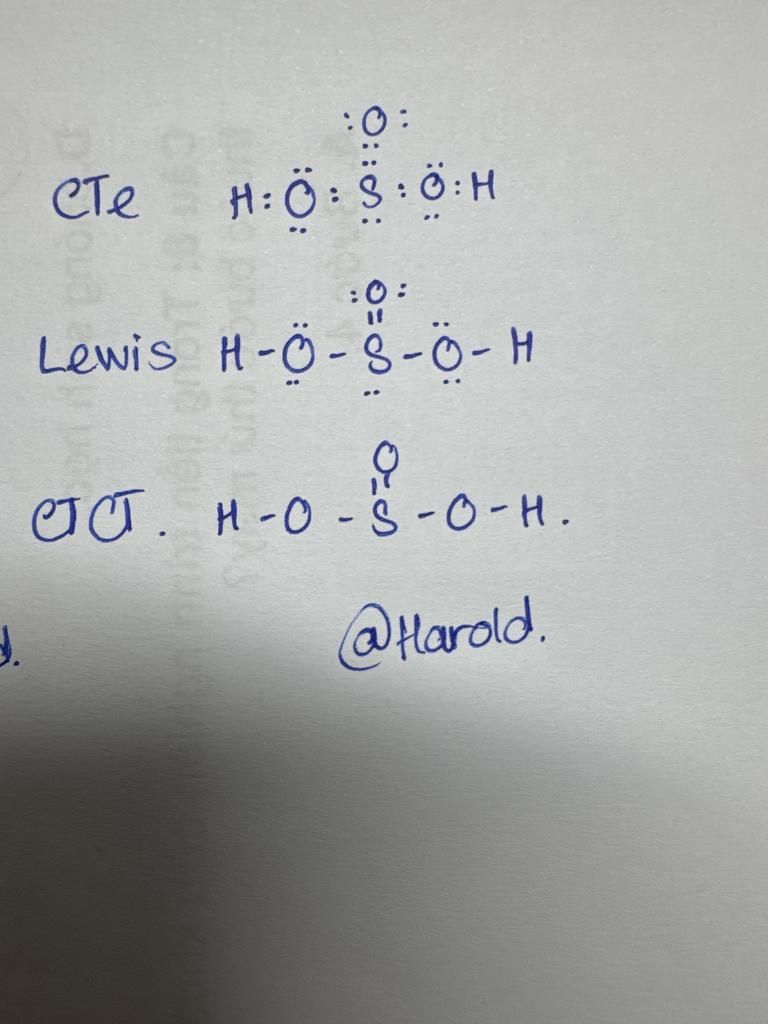 :O:
CTe H:Ö:S:Ö:H
:O:
Lewis H-Ö-S-Ö-H
O
CTCT. H-O-S-O-H.
@Harold.
d.